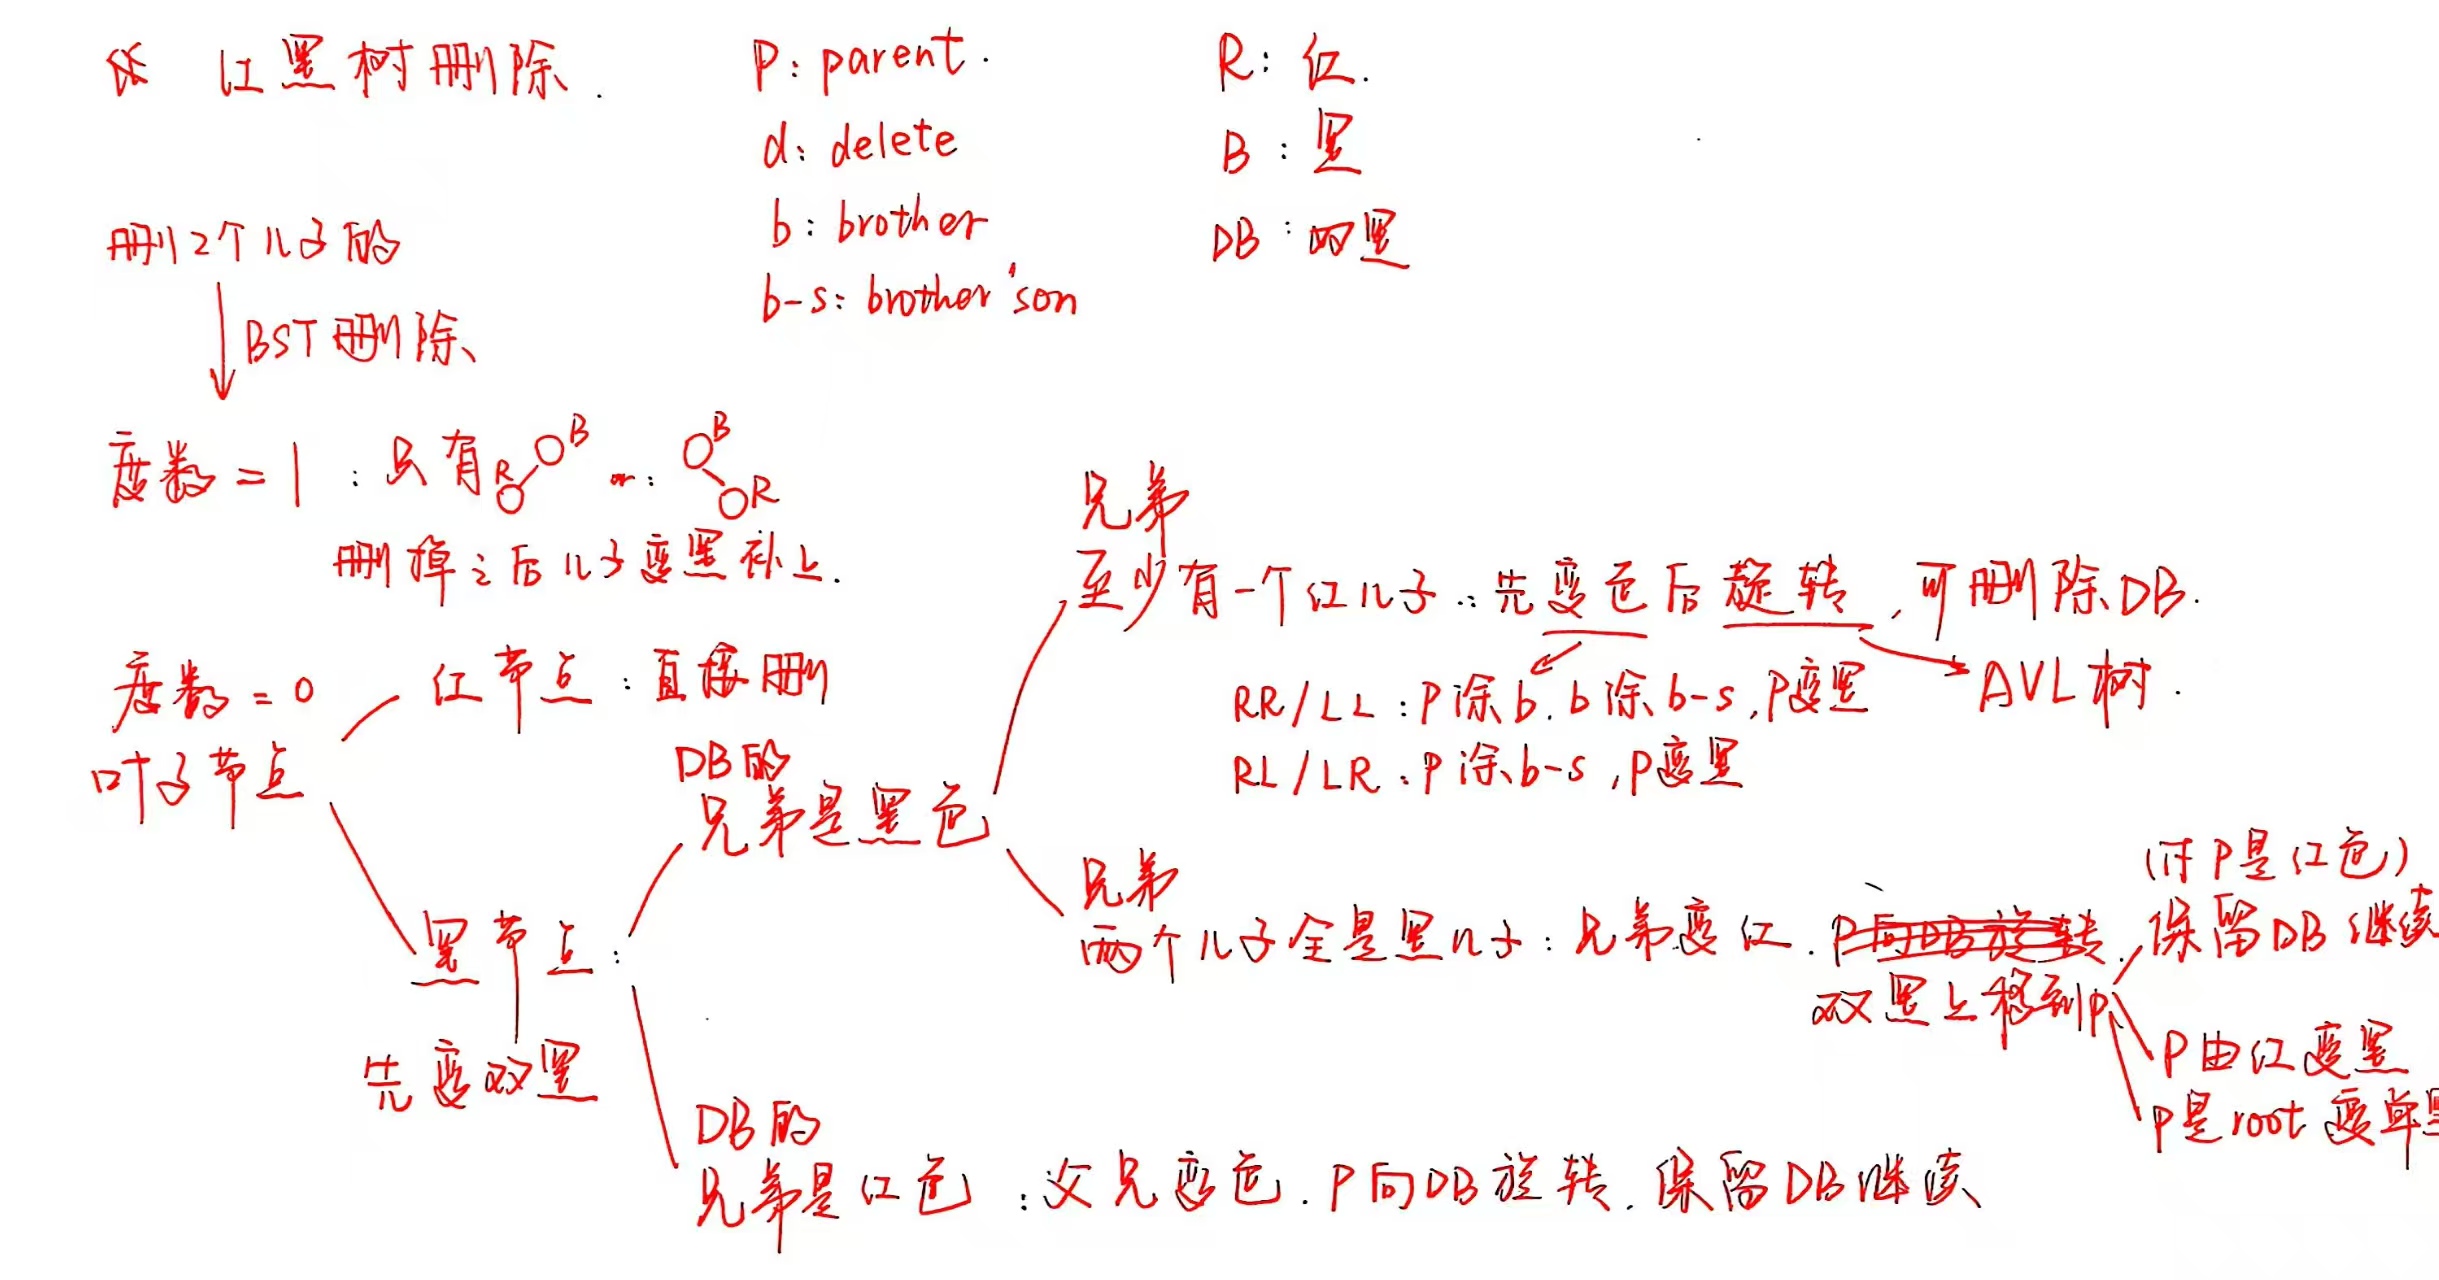 ※ 红黑树删除.
P: parent.
d: delete
b: brother
b-s: brother'son
R: 红.
B: 黑
DB: 双黑
删2个儿子的
BST删除
度数=1 : 只有
B
R
or:
B
R
删掉之后儿子变黑补上.
度数=0
叶子节点
红节点: 直接删
黑节点:
先变双黑
DB的
兄弟是黑色
兄弟
至少有一个红儿子: 先变色后旋转, 可删除DB.
RR/LL: P涂b, b涂b-s, P变黑
AVL树.
RL/LR: P涂b-s, P变黑
兄弟
两个儿子全是黑儿子: 兄弟变红. P向DB旋转.
双黑上移到P
P是红色)
保留DB继续
P由红变黑
P是root变单黑
DB的
兄弟是红色: 父兄变色. P向DB旋转. 保留DB继续